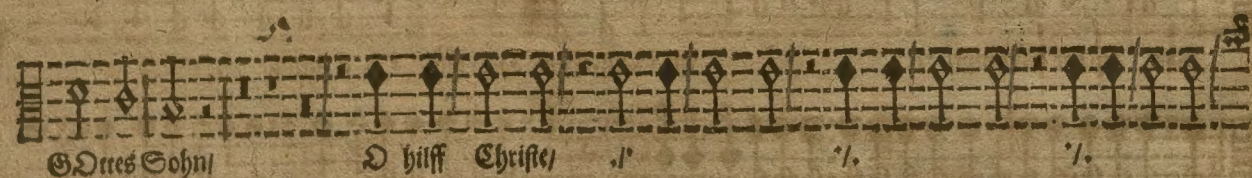 GOttes Sohn/ O hilff Christe/ ./. ./. ./.